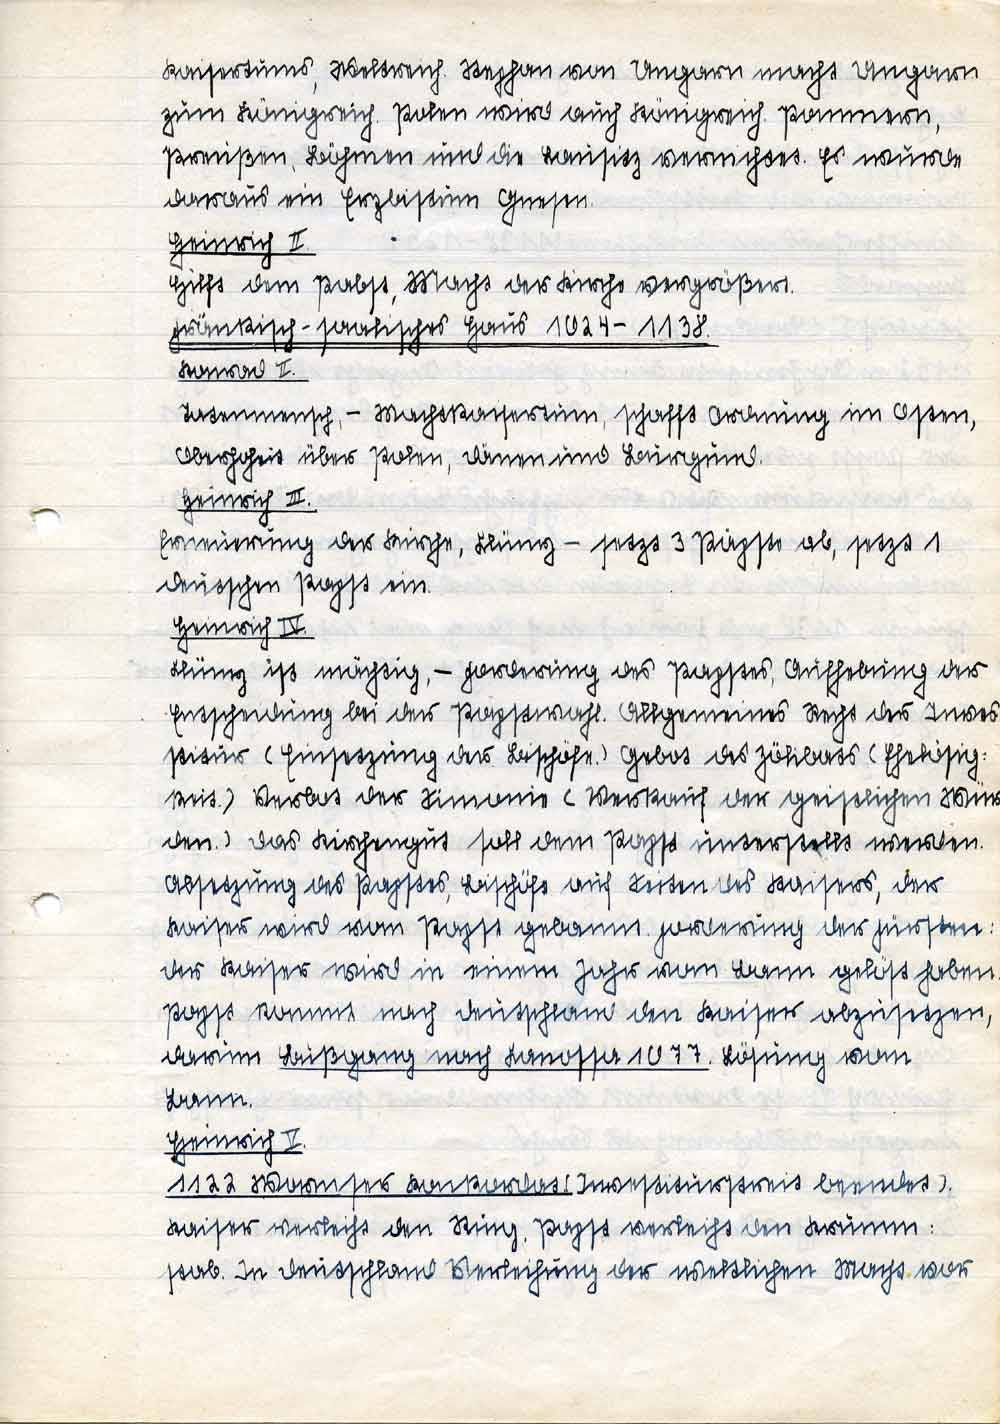 Kaisertums, Weltreich. Stephan von Ungarn macht Ungarn
zum Königreich. Polen wird auch Königreich. Pommern,
Preußen, Böhmen und die Lausitz vernichtet. Es wurde
daraus ein Erzbistum Gnesen.
Heinrich II.
Hilft dem Pabst, Macht der Kirche vergrößert.
Fränkisch-saalisches Haus 1024-1138.
Konrad II.
Tatenmensch, - Machtkaisertum, schafft Ordnung im Osten,
Oberhoheit über Polen, Dänen und Burgund.
Heinrich III.
Erneuerung der Kirche, Klüny - setzt 3 Päpste ab, setzt 1
deutschen Papst ein.
Heinrich IV.
Klüny ist mächtig, - Forderung des Papstes, Aufhebung der
Entscheidung bei der Papstwahl. Allgemeines Recht der Inves
stitur (Einsetzung der Bischöfe.) Gebot des Zölibats (Ehelosig:
keit.) Verbot der Simonie (Verkauf der geistlichen Wür
den.) Das Kirchengut soll dem Papst unterstellt werden.
Absetzung des Papstes, Bischöfe auf Seiten des Kaisers, der
Kaiser wird vom Papst gebannt. Forderung der Fürsten:
der Kaiser wird in einem Jahr vom Bann gelöst haben.
Papst kommt nach Deutschland den Kaiser abzusetzen,
darum Bußgang nach Kanossa 1077. Lösung vom
Bann.
Heinrich V.
1122 Wormser Konkordat (Investiturstreit beendet).
Kaiser verleiht den Ring, Papst verleiht den Krumm:
stab. In Deutschland Verleihung der weltlichen Macht vor